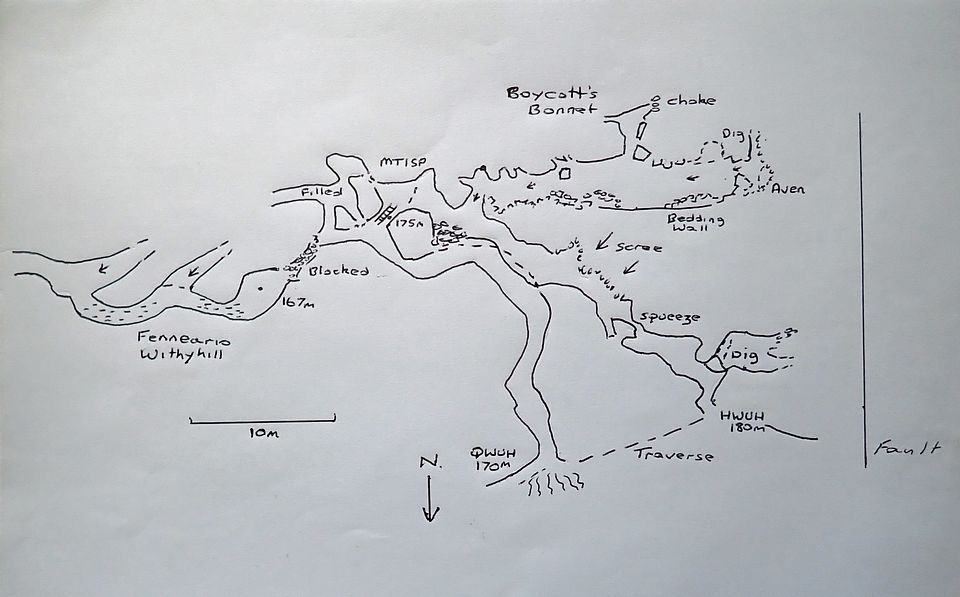 Boycott's
Bonnet
choke
Dig
MTISP
Filled
Aven
175m
Bedding
Wall
Scree
Blocked
167m
Squeeze
Fenneario
Withyhill
Dig
10m
HWUH
180m
QWUH
170m
Traverse
Fault
N.